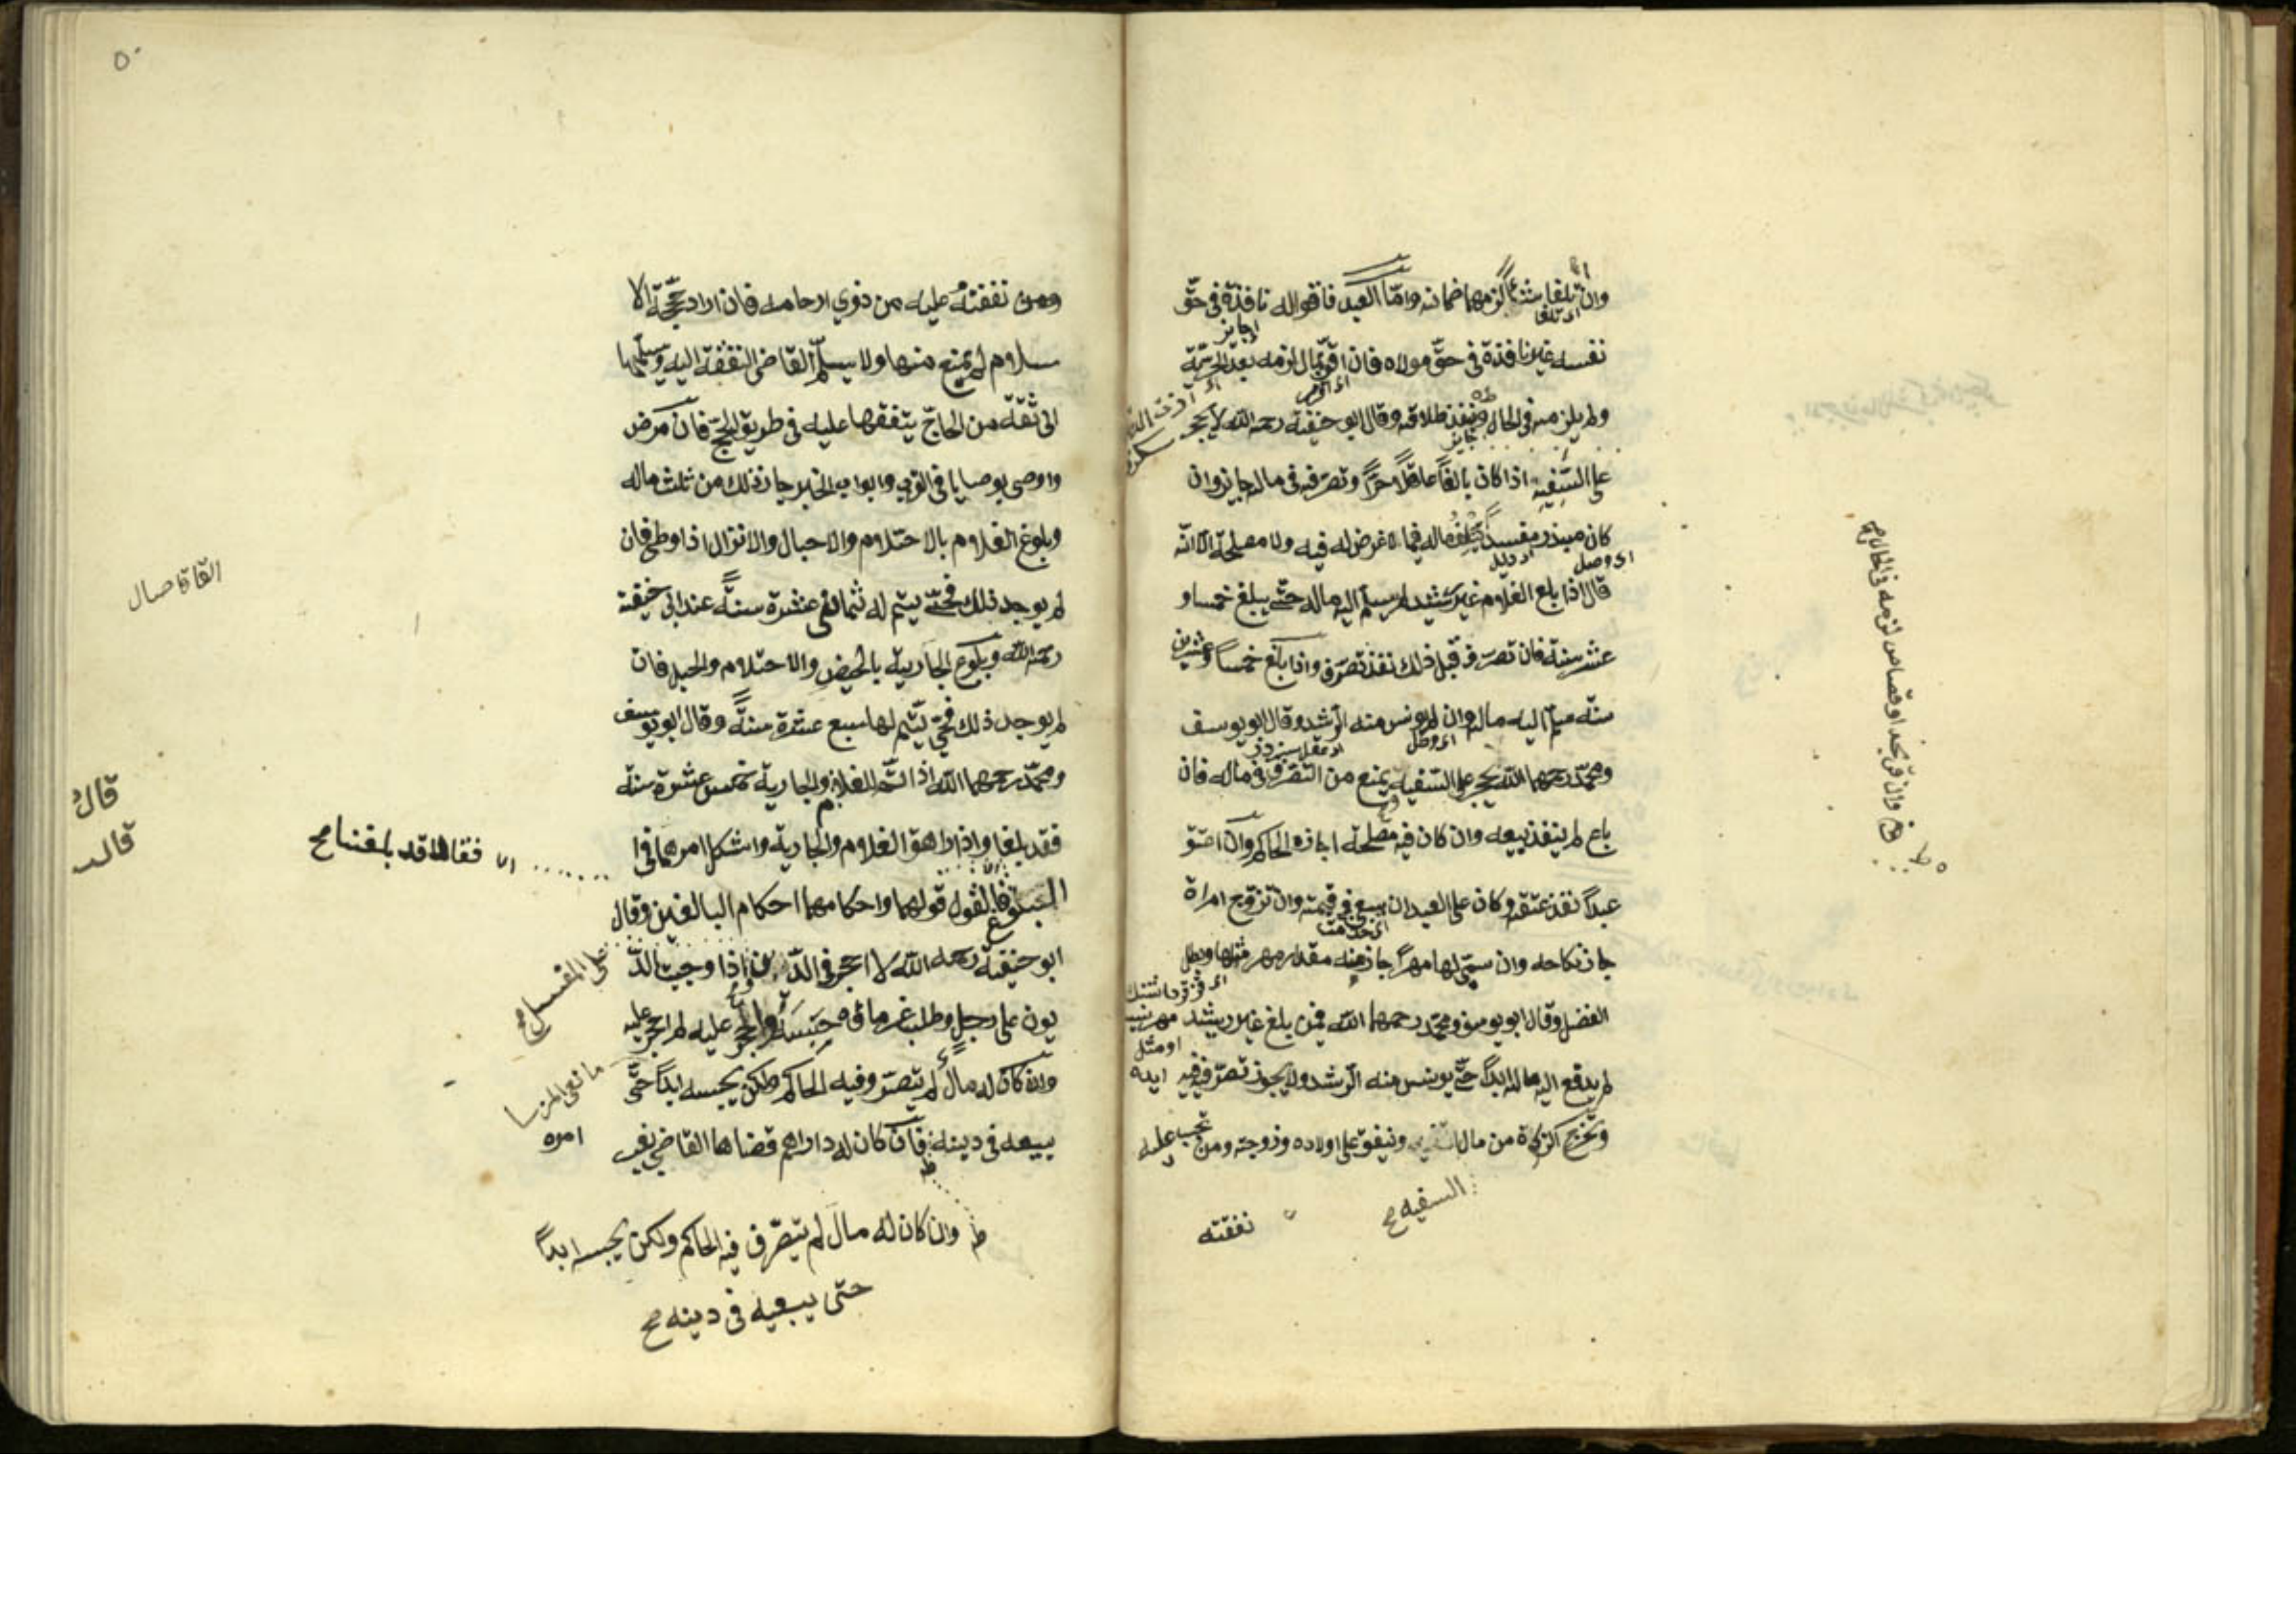 وان اتلفا شيئاً لزمهما ضمانه وامّا العبد فاقواله نافذة في حقّ
نفسه غير نافذة في حقّ مولاه فان اقرّ بمال لزمه بعد الحرّيّة
ولم يلزمه في الحال وينفذ طلاقه وقال ابو حنيفة رحمه الله لا يحجر
على السّفيه اذا كان بالغاً عاقلاً حرّاً وتصرّفه في ماله جايز وان
كان مبذر مفسداً يتلف ماله فيما لا غرض له فيه ولا مصلحة الا انّه
قال اذا بلغ الغلام غير رشيد لم يسلّم اليه ماله حتّى يبلغ خمسا و
عشر سنة فان تصرّف قبل ذلك نفذ تصرّف واذا بلغ خمساً وعشرين
سنة سلّم اليه ماله وان لم يونس منه الرّشد وقال ابو يوسف
ومحمّد رحمهما الله يحجر على السّفيه ويمنع من التّصرّف في ماله فان
باع لم ينفذ بيعه وان كان فيه مصلحة اجازه الحاكم وان اعتق
عبداً نفذ عتقه وكان على العبد ان يسعى في قيمته وان تزوّج امراة
جاز نكاحه وان سمّى لها مهراً جاز منه مقدار مهر مثلها وبطل
الفضل وقال ابو يوسف ومحمّد رحمهما الله فيمن بلغ غير رشيد
لم يدفع اليه ماله ابداً حتّى يونس منه الرّشد ولا يجوز تصرّفه فيه
وتخرج الزكاة من مال السّفيه وينفق على اولاده وزوجته ومن تجب عليه
السفيه صح
نفقته
وان اقرّ بحد او قصاص لزمه في الحال صح
٥٠
ومن نفقته عليه من ذوي ارحامه فان اراد حجّة الا
سلام لم يمنع منها ولا يسلّم القاضى النفقة اليه ويسلّمها
الى ثقة من الحاجّ ينفقها عليه في طريق الحجّ فان مرض
واوصى بوصايا في القرب وابواب الخير جاز ذلك من ثلث ماله
وبلوغ الغلام بالاحتلام والاحبال والانزال اذا وطئ فان
لم يوجد ذلك فحتّى يتم له ثمانى عشرة سنةً عند ابى حنيفة
رحمه الله وبلوغ الجارية بالحيض والاحتلام والحبل فان
لم يوجد ذلك فحتّى يتّم لها سبع عشرة سنةً وقال ابو يوسف
ومحمّد رحمهما الله اذا اتمّ للغلام والجارية خمس عشرة سنة
فقد بلغا واذا راهق الغلام والجارية واشكل امرهما في ا
البلوغ فالقول قولهما واحكامهما احكام البالغين وقال
ابو حنيفة رحمه الله لا احجر في الدّين واذا وجبت الدّ
يون على رجل وطلب غرماؤه حبسه والحجر عليه لم احجر عليه
وان كان له مالٌ لم يتصرّف فيه الحاكم ولكن يحبسه ابداً حتّى
يبيعه في دينه فان كان له دراهم قضاها القاضي بغير
امره
فقالا قد بلغنا صح
على المفلس صح
قالُ
قالـ
وان كان له مال لم يتصّرف فيه الحاكم ولكن يحبسه ابداً
حتى يبيعه فى دينه صح